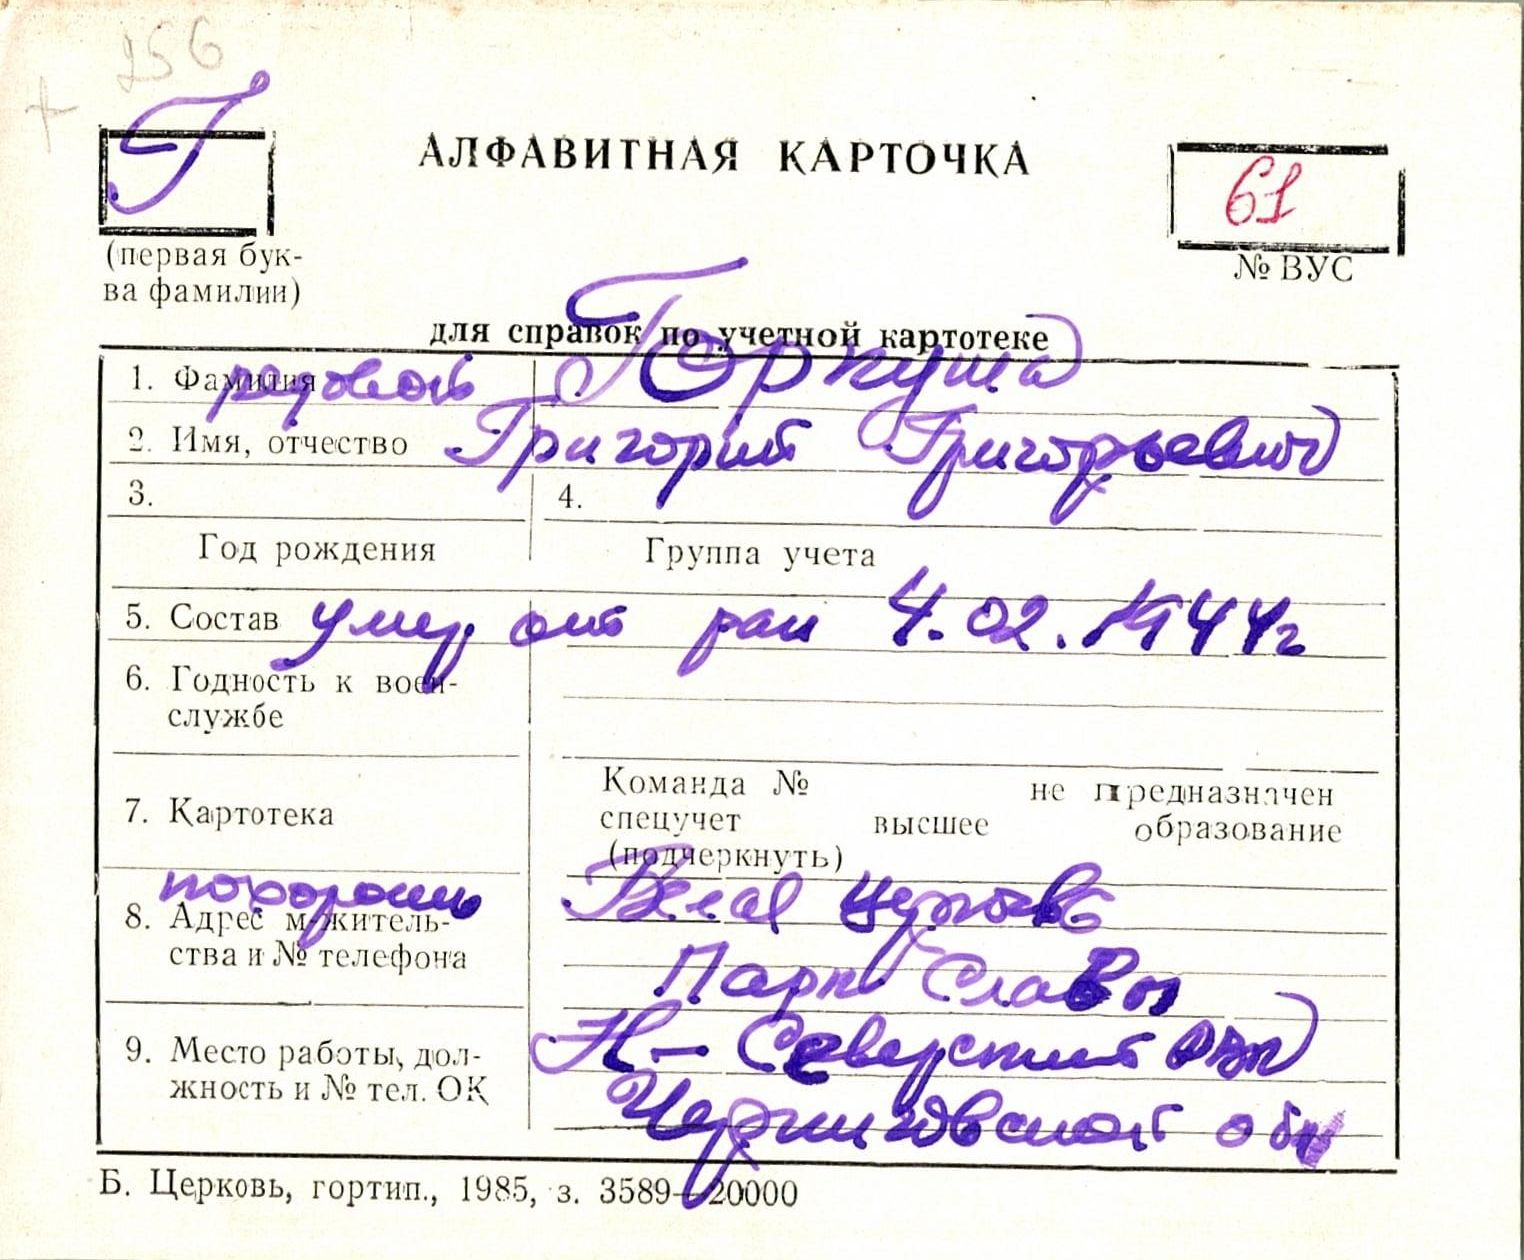 256
Г
АЛФАВИТНАЯ КАРТОЧКА
61
(первая бук-
ва фамилии)
№ ВУС
для справок по учетной картотеке
1. Фамилия рядовой Горкуша
2. Имя, отчество Григорий Григорьевич
3. 4.
Год рождения Группа учета
5. Состав умер от ран 4.02.1944г
6. Годность к воен-
службе
Команда № не предназначен
7. Картотека спецучет высшее образование
(подчеркнуть)
похоронен Белая Церковь
8. Адрес м-жительства
ства и № телефона
Парк Славы
Н-Северский РВК
9. Место работы, дол-
жность и № тел. ОК
Черниговской обл
Б. Церковь, гортип., 1985, з. 3589—20000